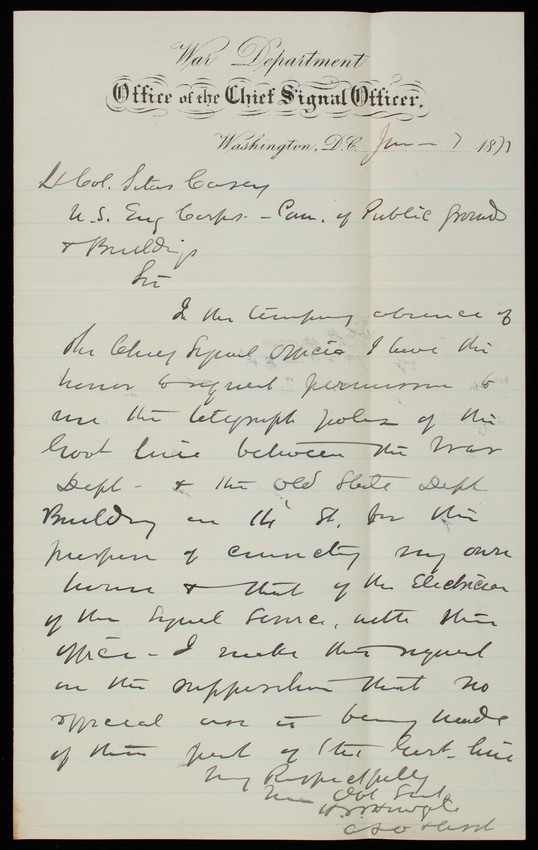 War Department
Office of the Chief Signal Officer.
Washington, D.C. 7 187
Lt Col. Silas Casey
U.S. Eng Corps. - Com. of Public Grounds
& Buildings
Sir
In the temporary absence of
the Chief Signal Officer I have the
honor to request permission to
use the telegraph poles of the
Govt line between the War
Dept - & the Old State Dept
Building on 14 St. for the
purpose of connecting my own
house & that of the Electrician
of the Signal Service, with this
office - I make this request
on the supposition that no
special use is being made
of this part of the Govt. line
Very Respectfully
Your Obt Servt